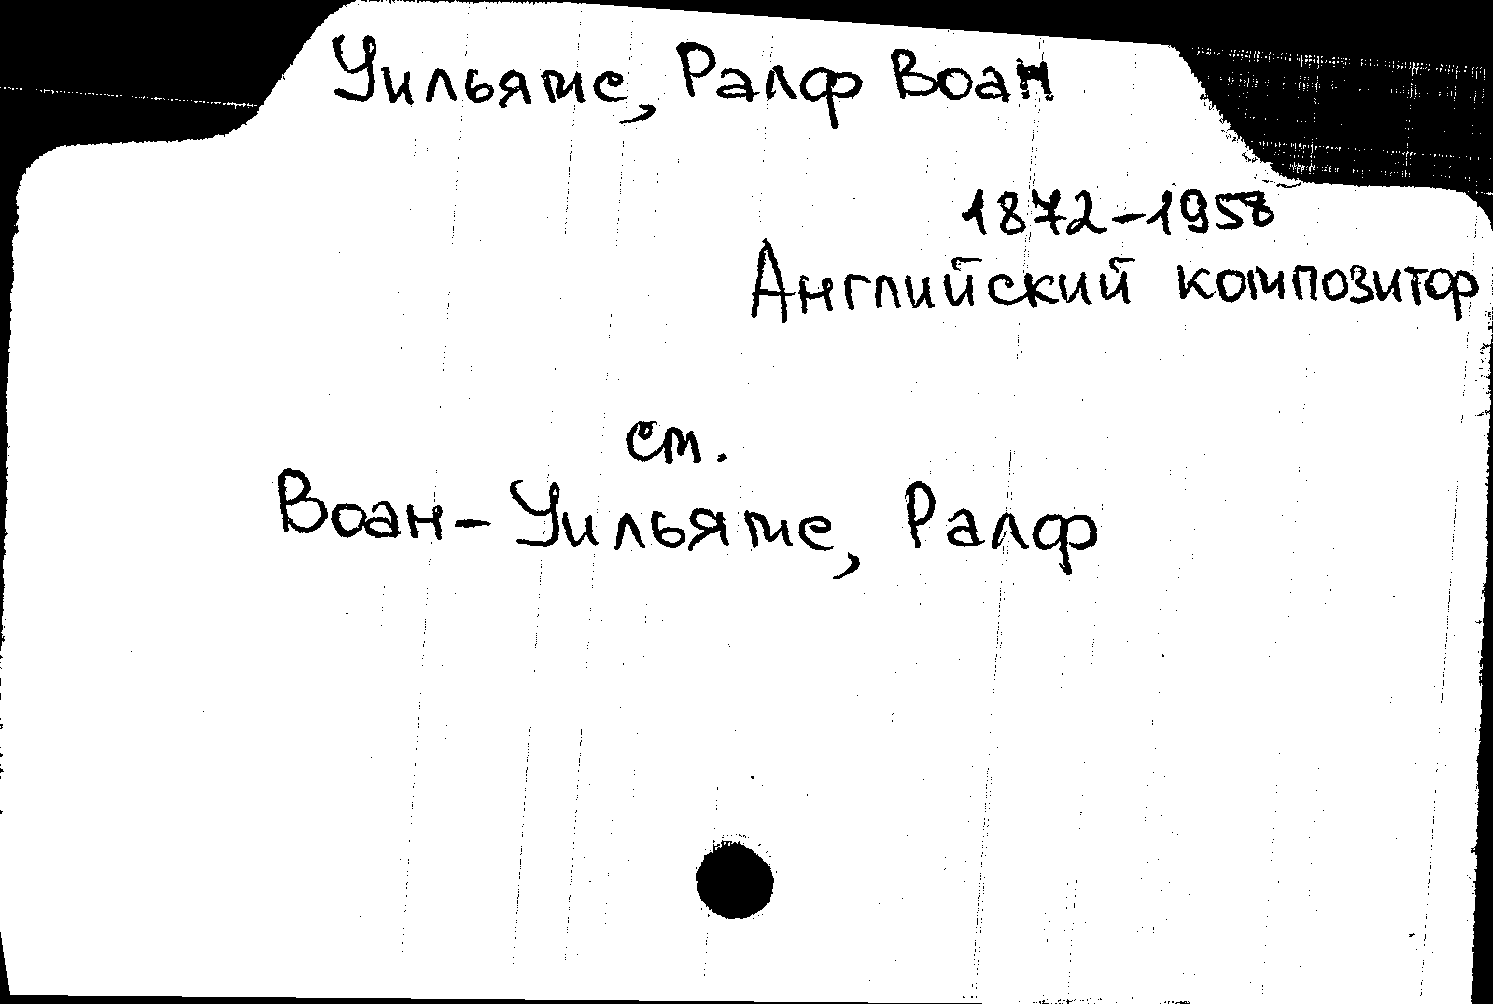 Уильямс, Ралф Воан
1872-1958
Английский композитор
см.
Воан-Уильямс, Ралф